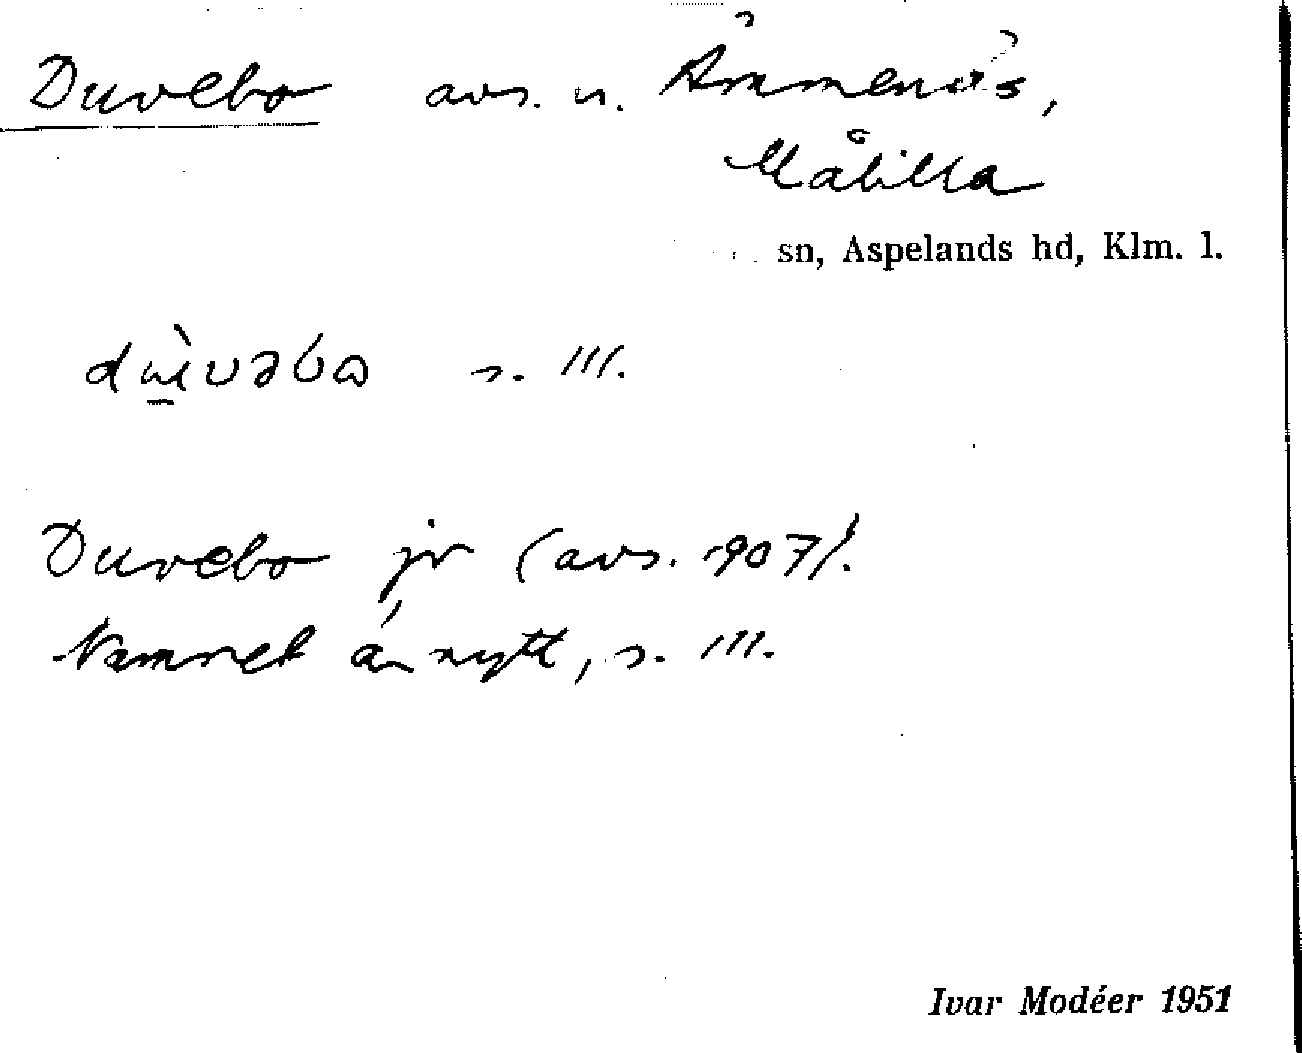 Duvebo avs. u. Åmmenäs,
Målilla
sn, Aspelands hd, Klm. l.
s. III.
Duvebo jr (avs. 1907).
Namnet är nytt, s. III.
Ivar Modéer 1951